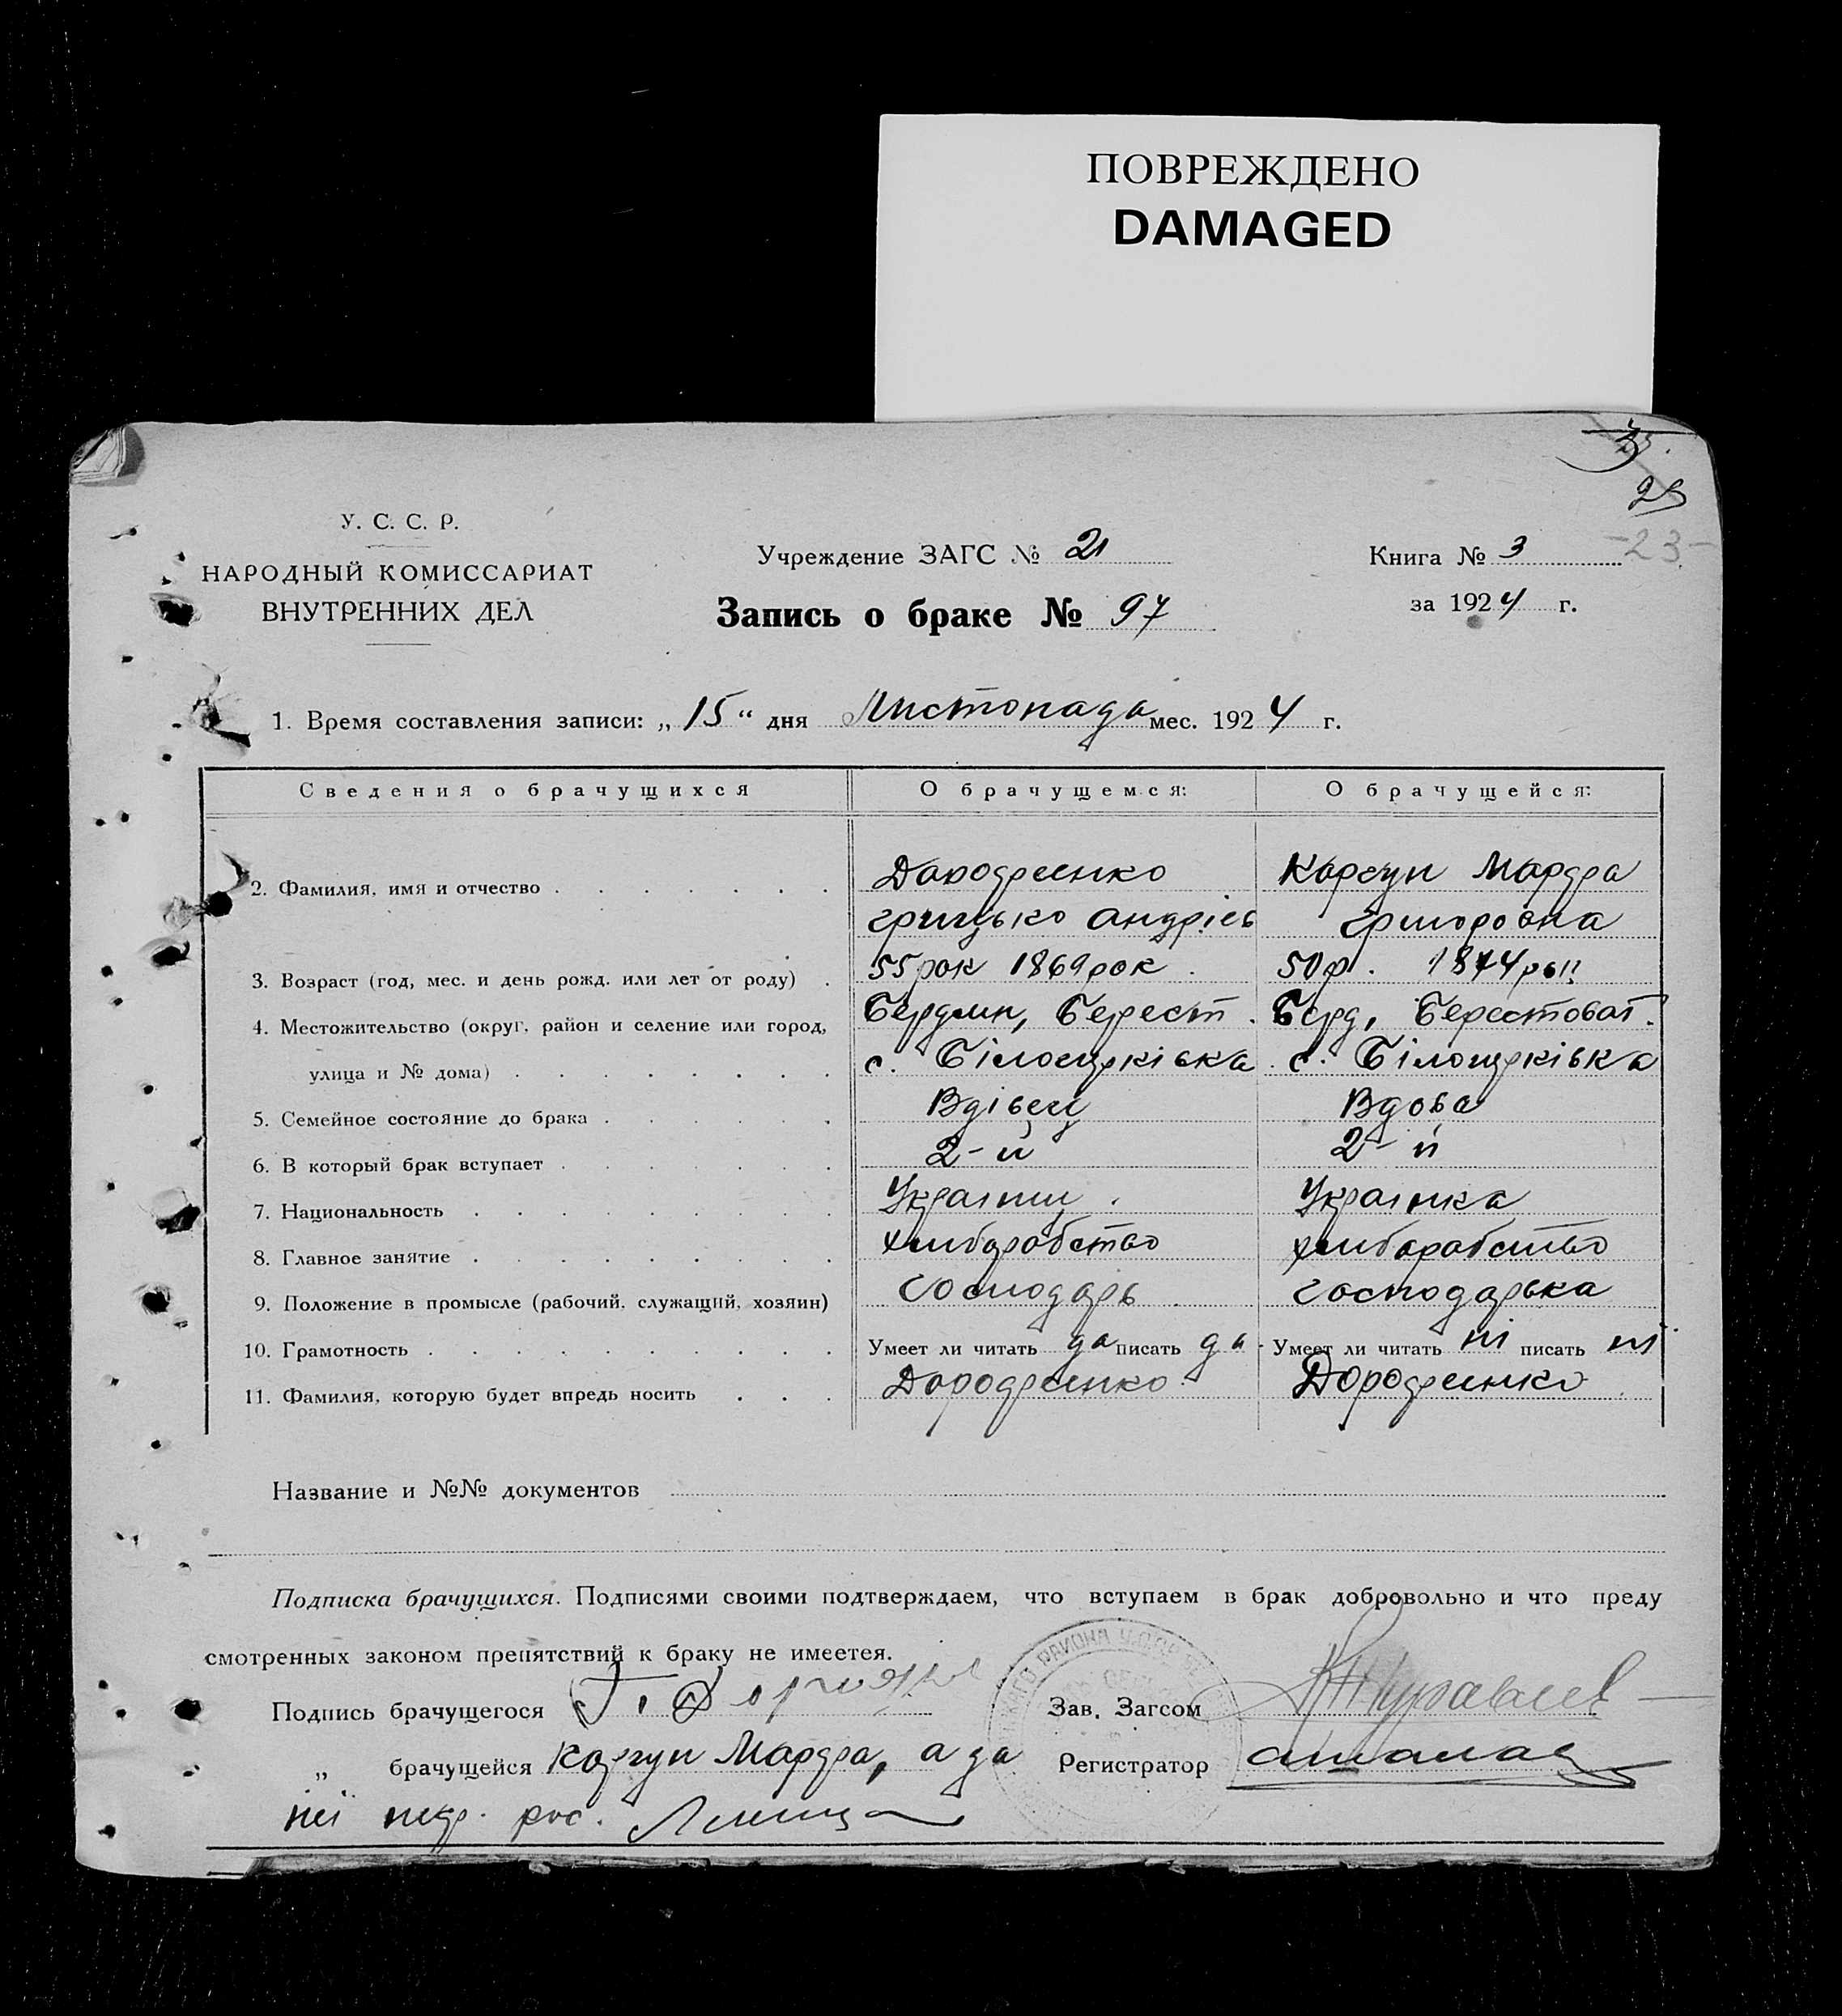 ПОВРЕЖДЕНО
DAMAGED
23
У. С. С. Р.
НАРОДНЫЙ КОМИССАРИАТ
ВНУТРЕННИХ ДЕЛ
Учреждение ЗАГС № 21
Запись о браке № 97
Книга № 3
за 1924 г.
1. Время составления записи: „15“ дня Листопада мес. 1924 г.
Сведения о брачущихся О брачущемся: О брачущейся:
2. Фамилия, имя и отчество Марфа
Грицько Андріев Григоровна
3. Возраст (год, мес. и день рожд. или лет от роду) 55 рок 1869 рок 50 р. 1874
4. Местожительство (округ, район и селение или город, Берест. Берд, Берестоват.
улица и № дома) с. Білоцерківка с. Білоцерківка
5. Семейное состояние до брака Вдівец Вдова
6. В который брак вступает 2-й 2-й
7. Национальность Украінец Украінка
8. Главное занятие хлиборобство хлиборобство
9. Положение в промысле (рабочий, служащий, хозяин) Господарь господарька
10. Грамотность Умеет ли читать да писать да Умеет ли читать ні писать ні
11. Фамилия, которую будет впредь носить
Название и №№ документов
Подписка брачущихся. Подписями своими подтверждаем, что вступаем в брак добровольно и что преду
смотренных законом препятствий к браку не имеется.
Подпись брачущегося Зав. Загсом
„ брачущейся Марфа, а за Регистратор
неї рос.